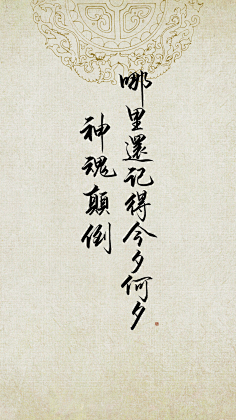 哪里還记得今夕何夕
神魂顛倒